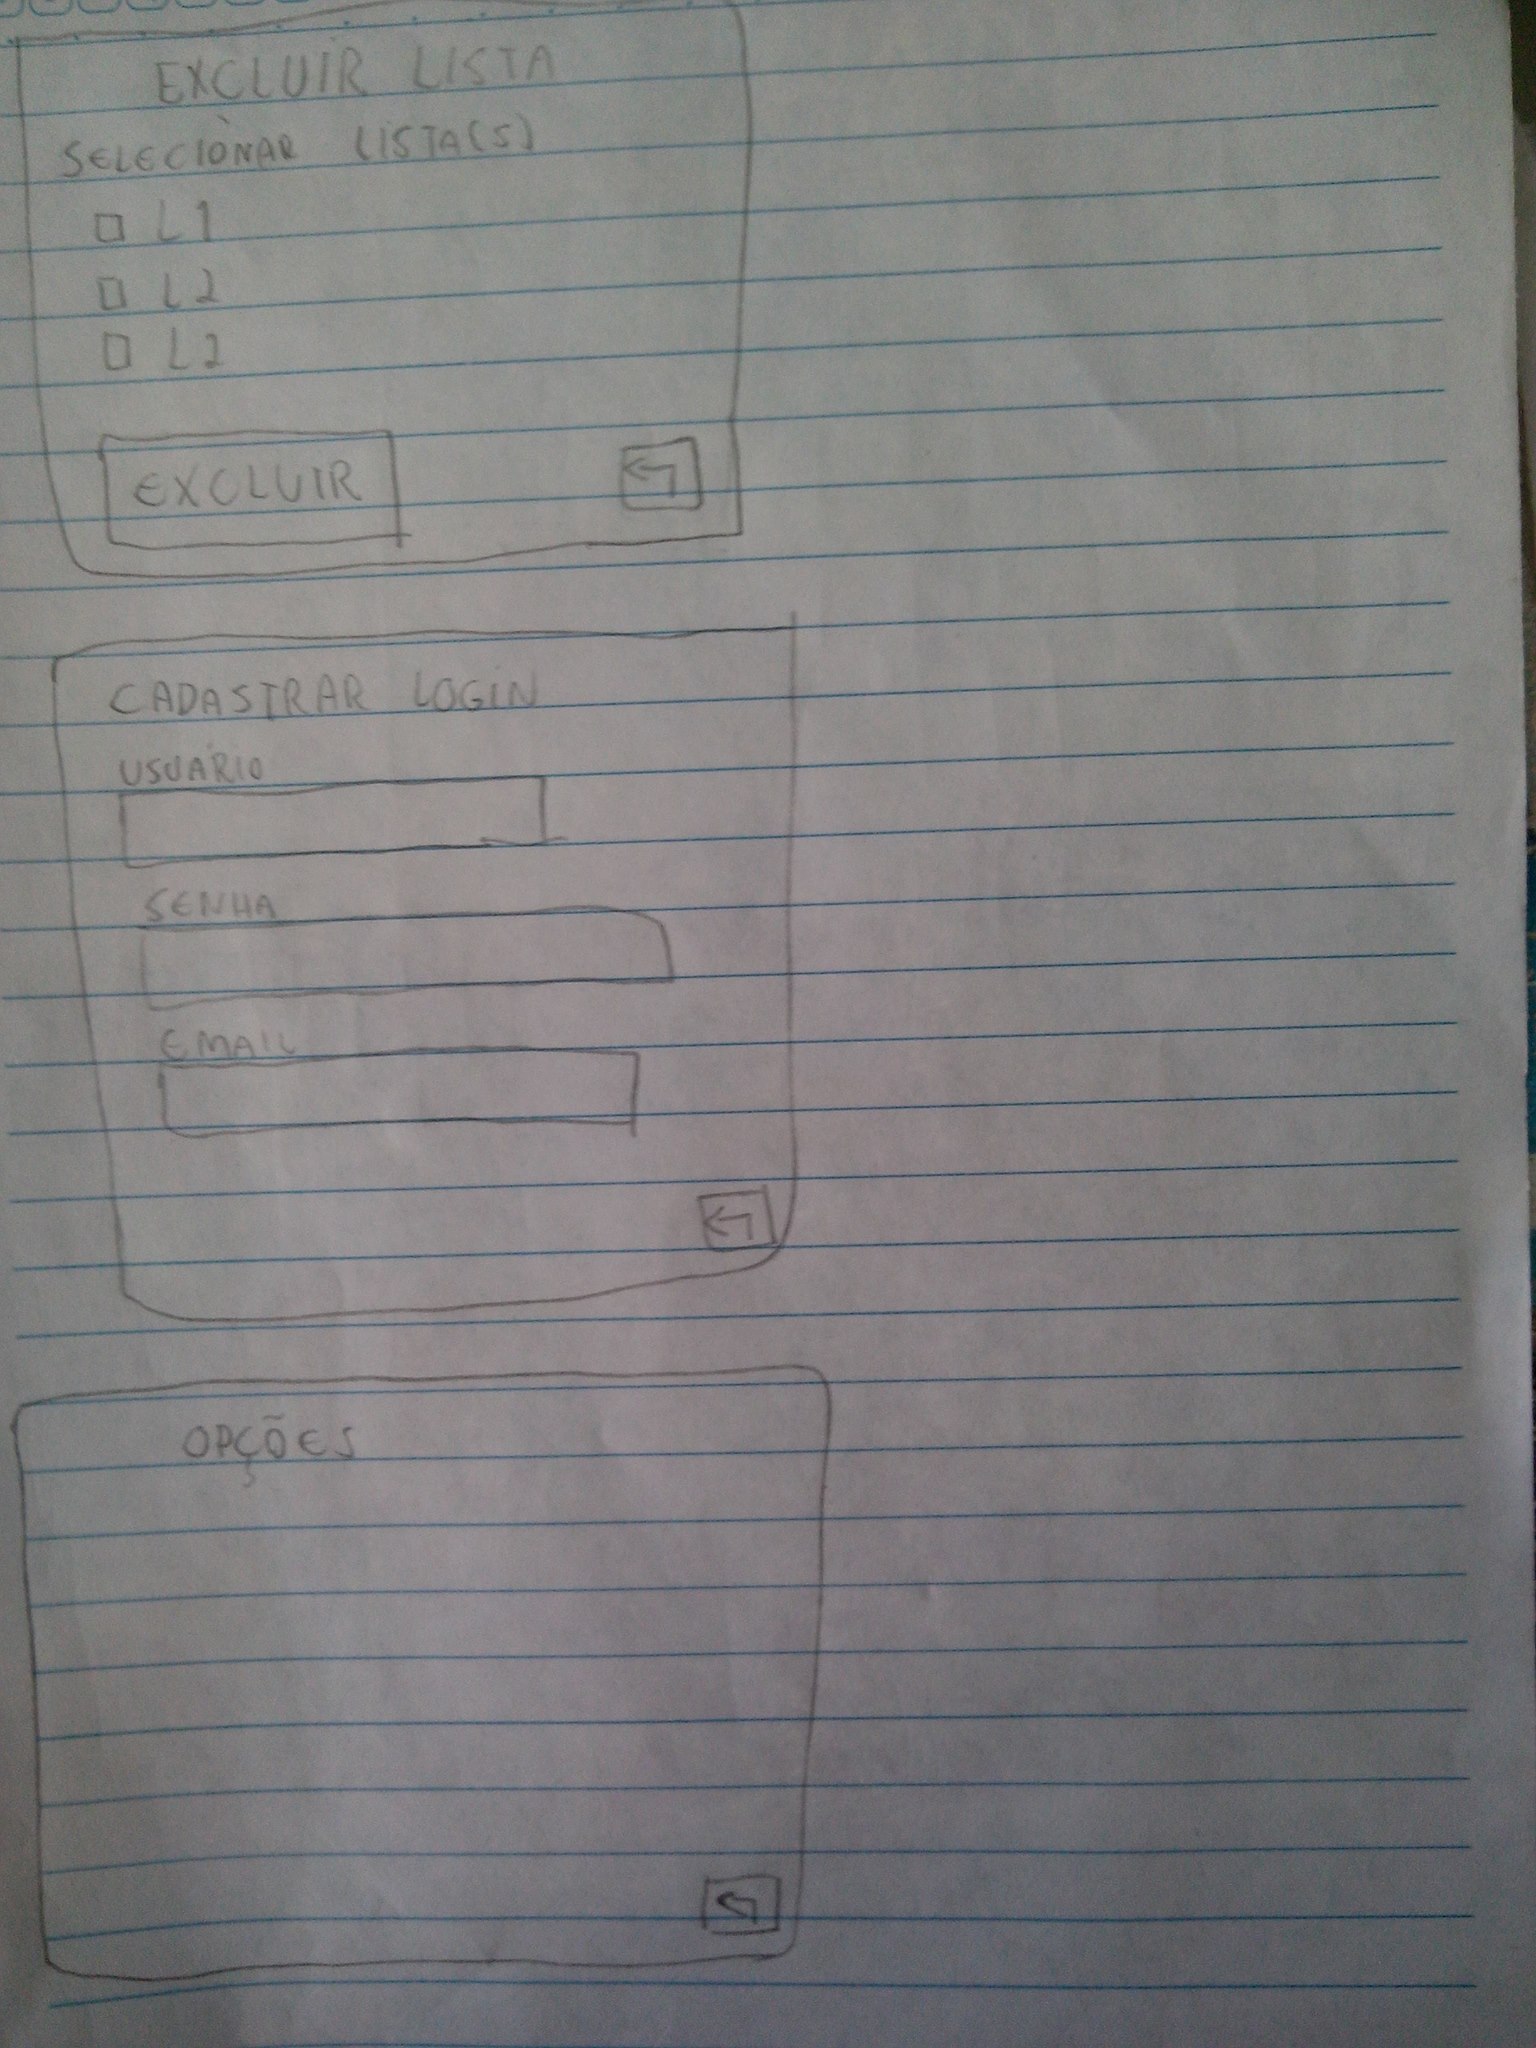 EXCLUIR LISTA
SELECIONAR LISTA(S)
L1
L2
L2
EXCLUIR
CADASTRAR LOGIN
USUÁRIO
SENHA
EMAIL
OPÇÕES